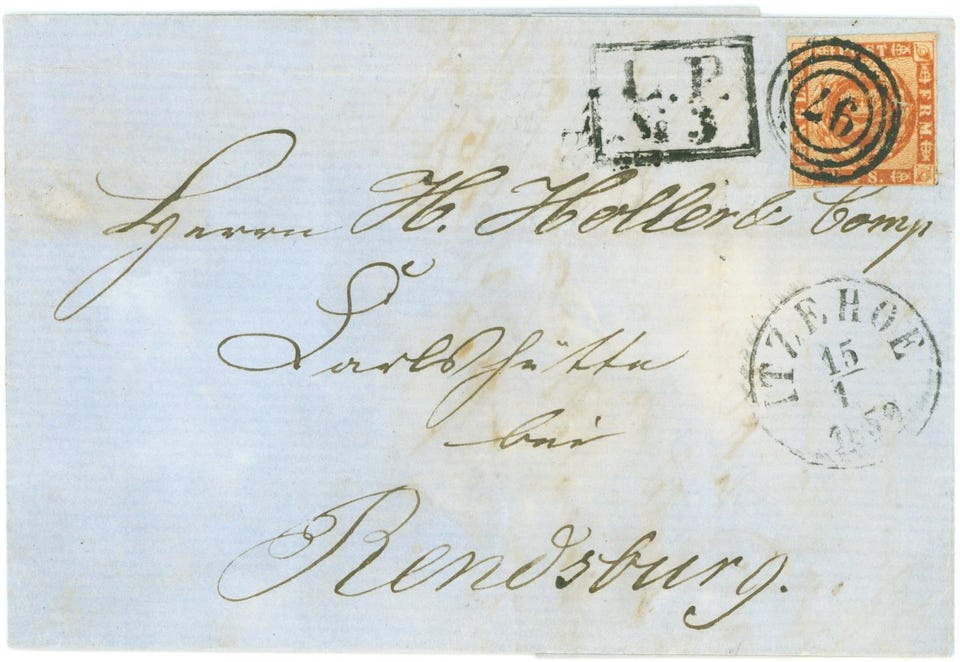 L. P.
№ 3
POST
FRM
S.
46
Herrn H. Holler & Comp
Carlshütte
bei
Rendsburg.
ITZEHOE
15
1
1859